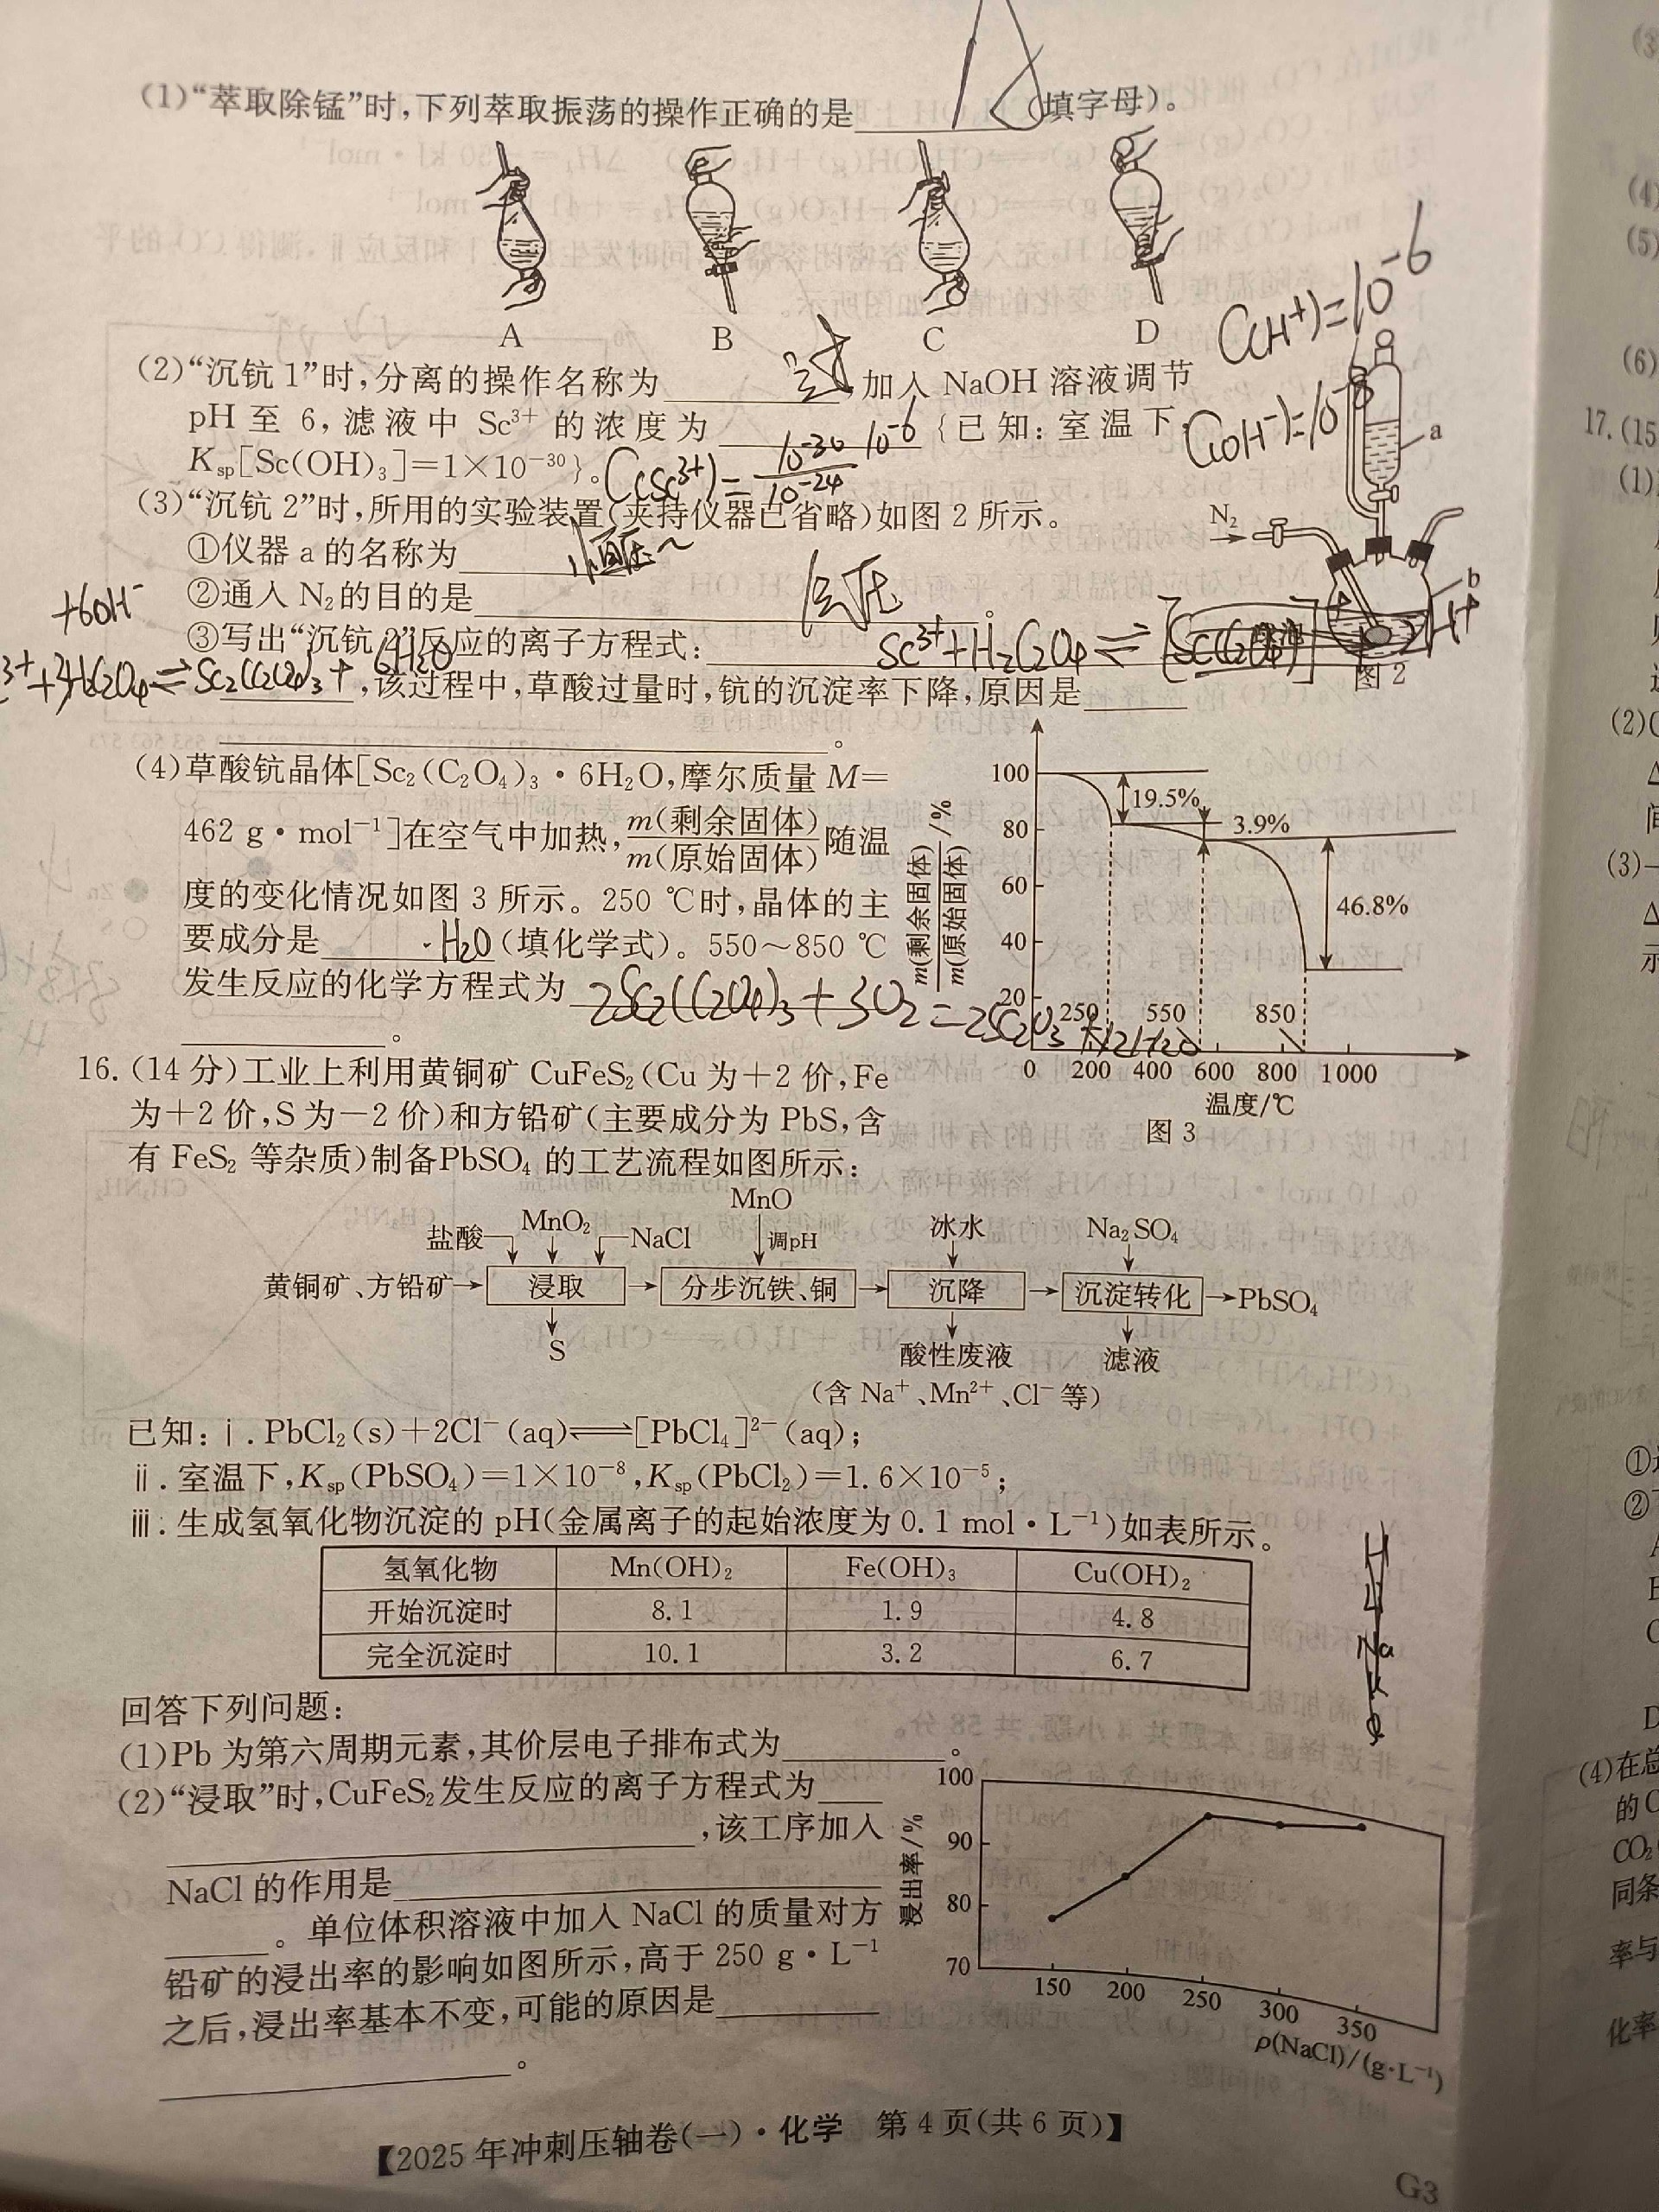 (1)“萃取除锰”时,下列萃取振荡的操作正确的是 A (填字母)。
A B C D
(2)“沉钪1”时,分离的操作名称为 过 ,加入 NaOH 溶液调节
pH 至 6, 滤液中 Sc³⁺ 的浓度为 10⁻⁶ {已知:室温下,
Kₛₚ[Sc(OH)₃]=1×10⁻³⁰}。
C(Sc³⁺)= 10⁻³⁰/10⁻²⁴
C(H⁺)=10⁻⁶
C(OH⁻)=10⁻⁸
(3)“沉钪2”时,所用的实验装置(夹持仪器已省略)如图2所示。
①仪器 a 的名称为
②通入 N₂ 的目的是
③写出“沉钪2”反应的离子方程式: Sc³⁺+H₂C₂O₄⇌
+6OH⁻
³⁺+3H₂C₂O₄⇌Sc₂(C₂O₄)₃+ 6H₂O
,该过程中,草酸过量时,钪的沉淀率下降,原因是
。
N₂
a
b
H⁺
图 2
(4)草酸钪晶体[Sc₂(C₂O₄)₃·6H₂O,摩尔质量 M=
462 g·mol⁻¹]在空气中加热, m(剩余固体)/m(原始固体) 随温
度的变化情况如图 3 所示。250 ℃时,晶体的主
要成分是 ·H₂O (填化学式)。550~850 ℃
发生反应的化学方程式为 2Sc₂(C₂O₄)₃+3O₂=2Sc₂O₃+12H₂O
。
m(剩余固体)/m(原始固体) /%
100
80
60
40
20
19.5%
3.9%
46.8%
250 550 850
0 200 400 600 800 1000
温度/℃
图 3
16.(14 分)工业上利用黄铜矿 CuFeS₂(Cu 为+2 价,Fe
为+2 价,S 为−2 价)和方铅矿(主要成分为 PbS,含
有 FeS₂ 等杂质)制备PbSO₄ 的工艺流程如图所示:
盐酸 MnO₂ NaCl MnO 调pH 冰水 Na₂SO₄
黄铜矿、方铅矿→ 浸取 → 分步沉铁、铜 → 沉降 → 沉淀转化 →PbSO₄
S 酸性废液 滤液
(含 Na⁺、Mn²⁺、Cl⁻ 等)
已知:ⅰ.PbCl₂(s)+2Cl⁻(aq)⇌[PbCl₄]²⁻(aq);
ⅱ.室温下,Kₛₚ(PbSO₄)=1×10⁻⁸,Kₛₚ(PbCl₂)=1.6×10⁻⁵;
ⅲ.生成氢氧化物沉淀的 pH(金属离子的起始浓度为 0.1 mol·L⁻¹)如表所示。
氢氧化物 Mn(OH)₂ Fe(OH)₃ Cu(OH)₂
开始沉淀时 8.1 1.9 4.8
完全沉淀时 10.1 3.2 6.7
H
Na
K
回答下列问题:
(1)Pb 为第六周期元素,其价层电子排布式为 。
(2)“浸取”时,CuFeS₂发生反应的离子方程式为
,该工序加入
NaCl 的作用是
。单位体积溶液中加入 NaCl 的质量对方
铅矿的浸出率的影响如图所示,高于 250 g·L⁻¹
之后,浸出率基本不变,可能的原因是
。
浸出率/%
100
90
80
70
150 200 250 300 350
ρ(NaCl)/(g·L⁻¹)
【2025 年冲刺压轴卷(一)·化学 第 4 页(共 6 页)】
G3
(3
(4)
(5)
(6)
17.(15
(1)
(2)C
(3)一
①
②
(4)在总
的 C
CO₂
同条
率与
化率